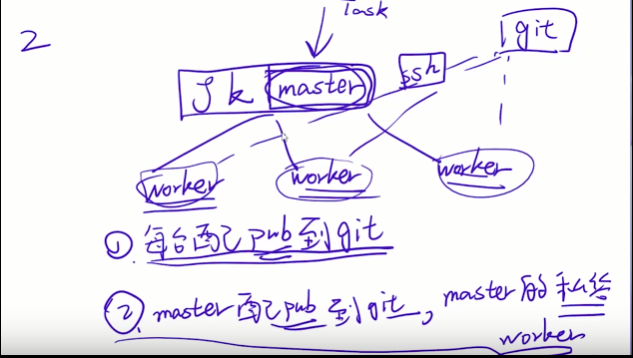 Task
2
git
ssh
Jk master
worker worker worker
① 每台配pub到git
② master配pub到git, master的私给
worker